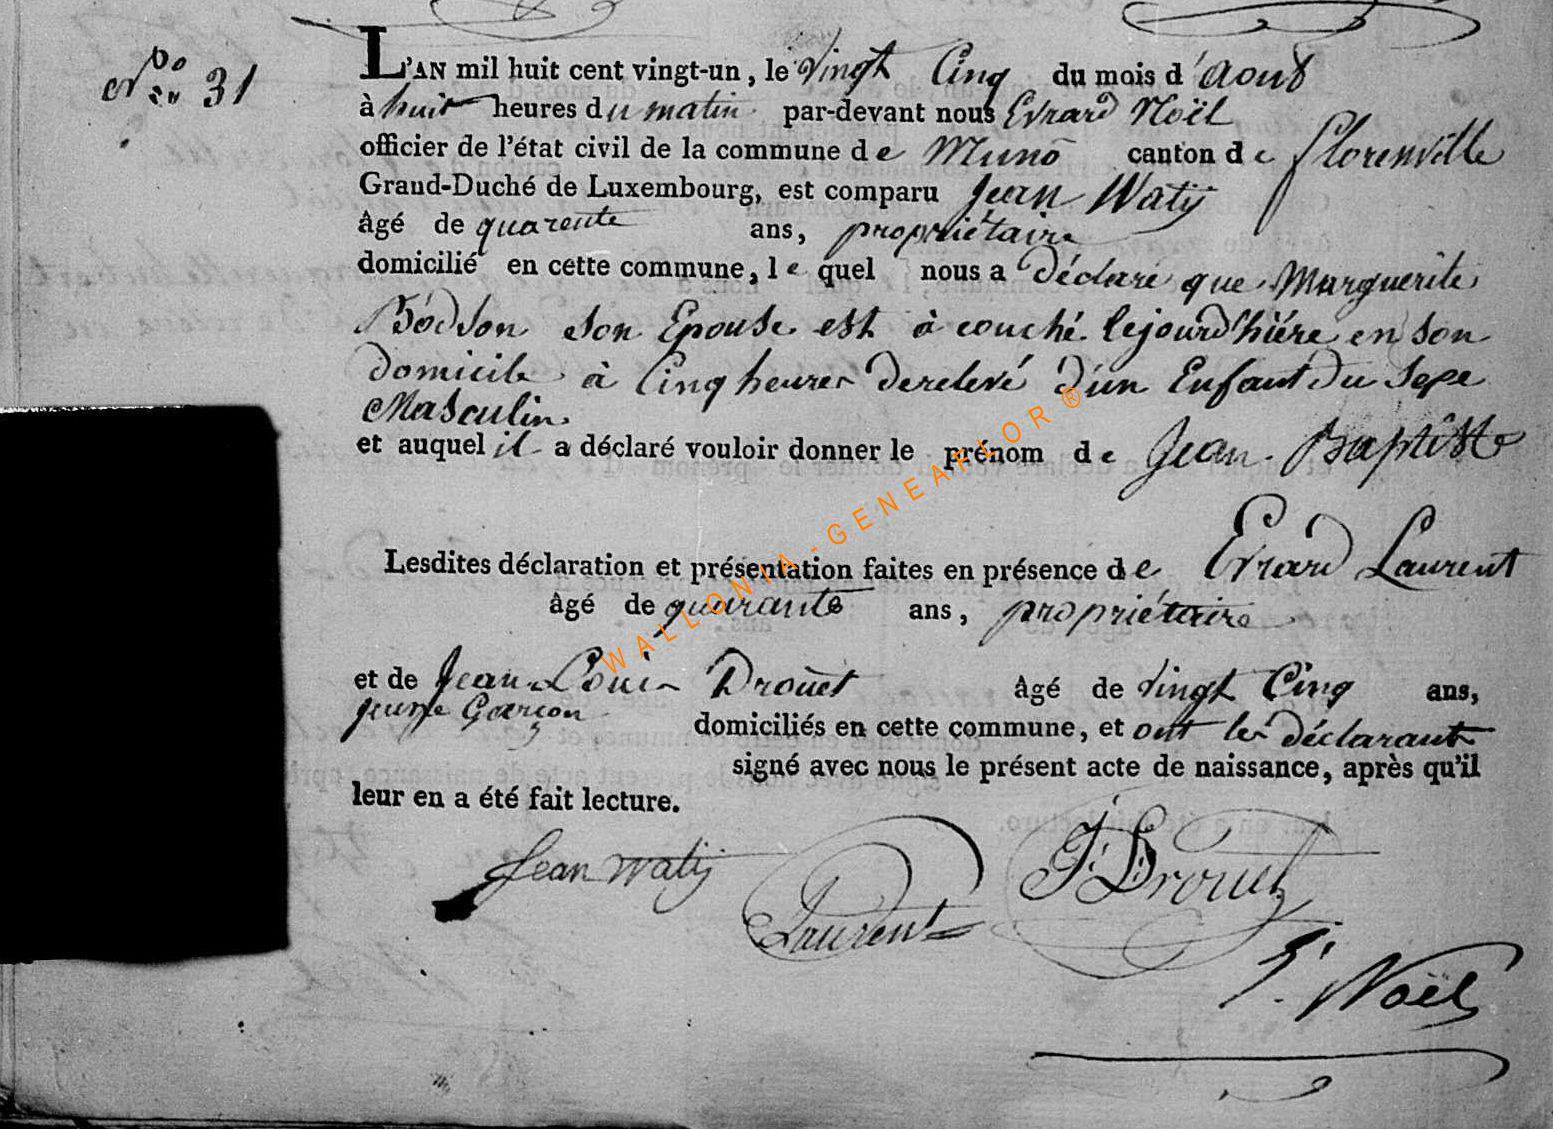 No 31
L'AN mil huit cent vingt-un, le vingt Cinq du mois d'aout
à huit heures du matin par-devant nous Evrard Noël
officier de l'état civil de la commune de Muno canton de florenville
Grand-Duché de Luxembourg, est comparu Jean Watÿ
âgé de quarente ans, propriétaire
domicilié en cette commune, le quel nous a déclaré que Marguerite
Bodson son Epouse est à couché lejourd'hiére en son
domicile à Cinq heures derelevé d'un Enfant du Sexe
Masculin.
et auquel il a déclaré vouloir donner le prénom de Jean Baptiste
Lesdites déclaration et présentation faites en présence de Evrard Laurent
âgé de quarante ans, propriétaire
et de Jean Louis Drouet âgé de vingt Cinq ans,
jeune Garçon domiciliés en cette commune, et ont les déclarant
signé avec nous le présent acte de naissance, après qu'il
leur en a été fait lecture.
Jean watÿ
Laurent
J: L Drouet
E. Noël
WALLONIA-GENEAFLOR ®